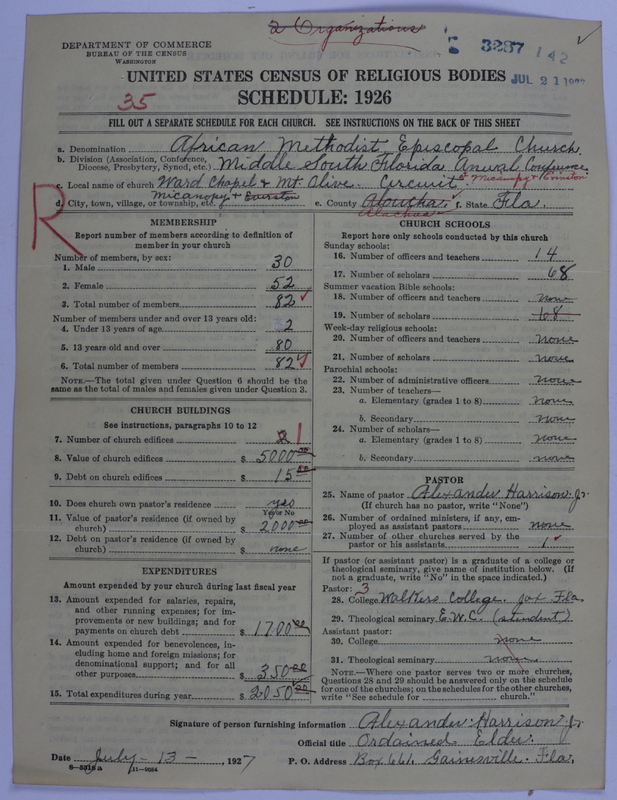 2 Organizations
DEPARTMENT OF COMMERCE
BUREAU OF THE CENSUS
WASHINGTON
3287 142
JUL 21
UNITED STATES CENSUS OF RELIGIOUS BODIES
35
SCHEDULE: 1926
FILL OUT A SEPARATE SCHEDULE FOR EACH CHURCH. SEE INSTRUCTIONS ON THE BACK OF THIS SHEET
a. Denomination African Methodist Episcopal Church
b. Division (Association, Conference, Diocese, Presbytery, Synod, etc.) Middle South Florida Anual Conference
c. Local name of church Ward Chapel & Mt. Olive. Circuit. Micanopy + Evinston
d. City, town, village, or township, etc. Micanopy + Evurston e. County Aloucha f. State Fla.
Alachua
R
MEMBERSHIP
Report number of members according to definition of member in your church
Number of members, by sex:
1. Male 30
2. Female 52
3. Total number of members 82 ✓
Number of members under and over 13 years old:
4. Under 13 years of age 2
5. 13 years old and over 80
6. Total number of members 82 ✓
NOTE.—The total given under Question 6 should be the same as the total of males and females given under Question 3.
CHURCH BUILDINGS
See instructions, paragraphs 10 to 12
7. Number of church edifices 2 1
8. Value of church edifices $ 5000.00
9. Debt on church edifices $ 15.00
10. Does church own pastor's residence yes
Yes or No
11. Value of pastor's residence (if owned by church) $ 2000.00
12. Debt on pastor's residence (if owned by church) $ none
EXPENDITURES
Amount expended by your church during last fiscal year
13. Amount expended for salaries, repairs, and other running expenses; for improvements or new buildings; and for payments on church debt $ 1700.00
14. Amount expended for benevolences, including home and foreign missions; for denominational support; and for all other purposes $ 350.00
15. Total expenditures during year $ 2050.00
CHURCH SCHOOLS
Report here only schools conducted by this church
Sunday schools:
16. Number of officers and teachers 14
17. Number of scholars 68
Summer vacation Bible schools:
18. Number of officers and teachers none
19. Number of scholars 68
Week-day religious schools:
20. Number of officers and teachers none
21. Number of scholars none
Parochial schools:
22. Number of administrative officers none
23. Number of teachers—
a. Elementary (grades 1 to 8) none
b. Secondary none
24. Number of scholars—
a. Elementary (grades 1 to 8) none
b. Secondary none
PASTOR
25. Name of pastor Alexander Harrison Jr
(If church has no pastor, write "None")
26. Number of ordained ministers, if any, employed as assistant pastors none
27. Number of other churches served by the pastor or his assistants 1 ✓
If pastor (or assistant pastor) is a graduate of a college or theological seminary, give name of institution below. (If not a graduate, write "No" in the space indicated.)
Pastor: 3
28. College Walkers College. Jax Fla
29. Theological seminary E.W.C. (student)
Assistant pastor:
30. College none
31. Theological seminary none
NOTE.—Where one pastor serves two or more churches, Questions 28 and 29 should be answered only on the schedule for one of the churches; on the schedules for the other churches, write "See schedule for church."
Signature of person furnishing information Alexander Harrison Jr
Official title Ordained Elder
Date July - 13 -, 1927 P. O. Address Box 661. Gainesville. Fla.
8—5516a 11—9084